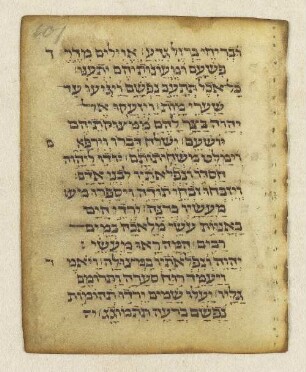 ובריחי ברזל גדע: אוילים מדרך
פשעם ומעונותיהם יתענו:
כל אכל תתעב נפשם ויגיעו עד
שערי מות: ויזעקו אל
יהוה בצר להם ממצקותיהם
יושיעם: ישלח דברו וירפאם
וימלט משחיתותם: יודו ליהוה
חסדו ונפלאתיו לבני אדם:
ויזבחו זבחי תודה ויספרו
מעשיו ברנה: יורדי הים
באניות עשי מלאכה במים
רבים: המה ראו מעשי
יהוה ונפלאתיו במצולה: ויאמר
ויעמד רוח סערה ותרומם
גליו: יעלו שמים ירדו תהומות
נפשם ברעה תתמוגג: